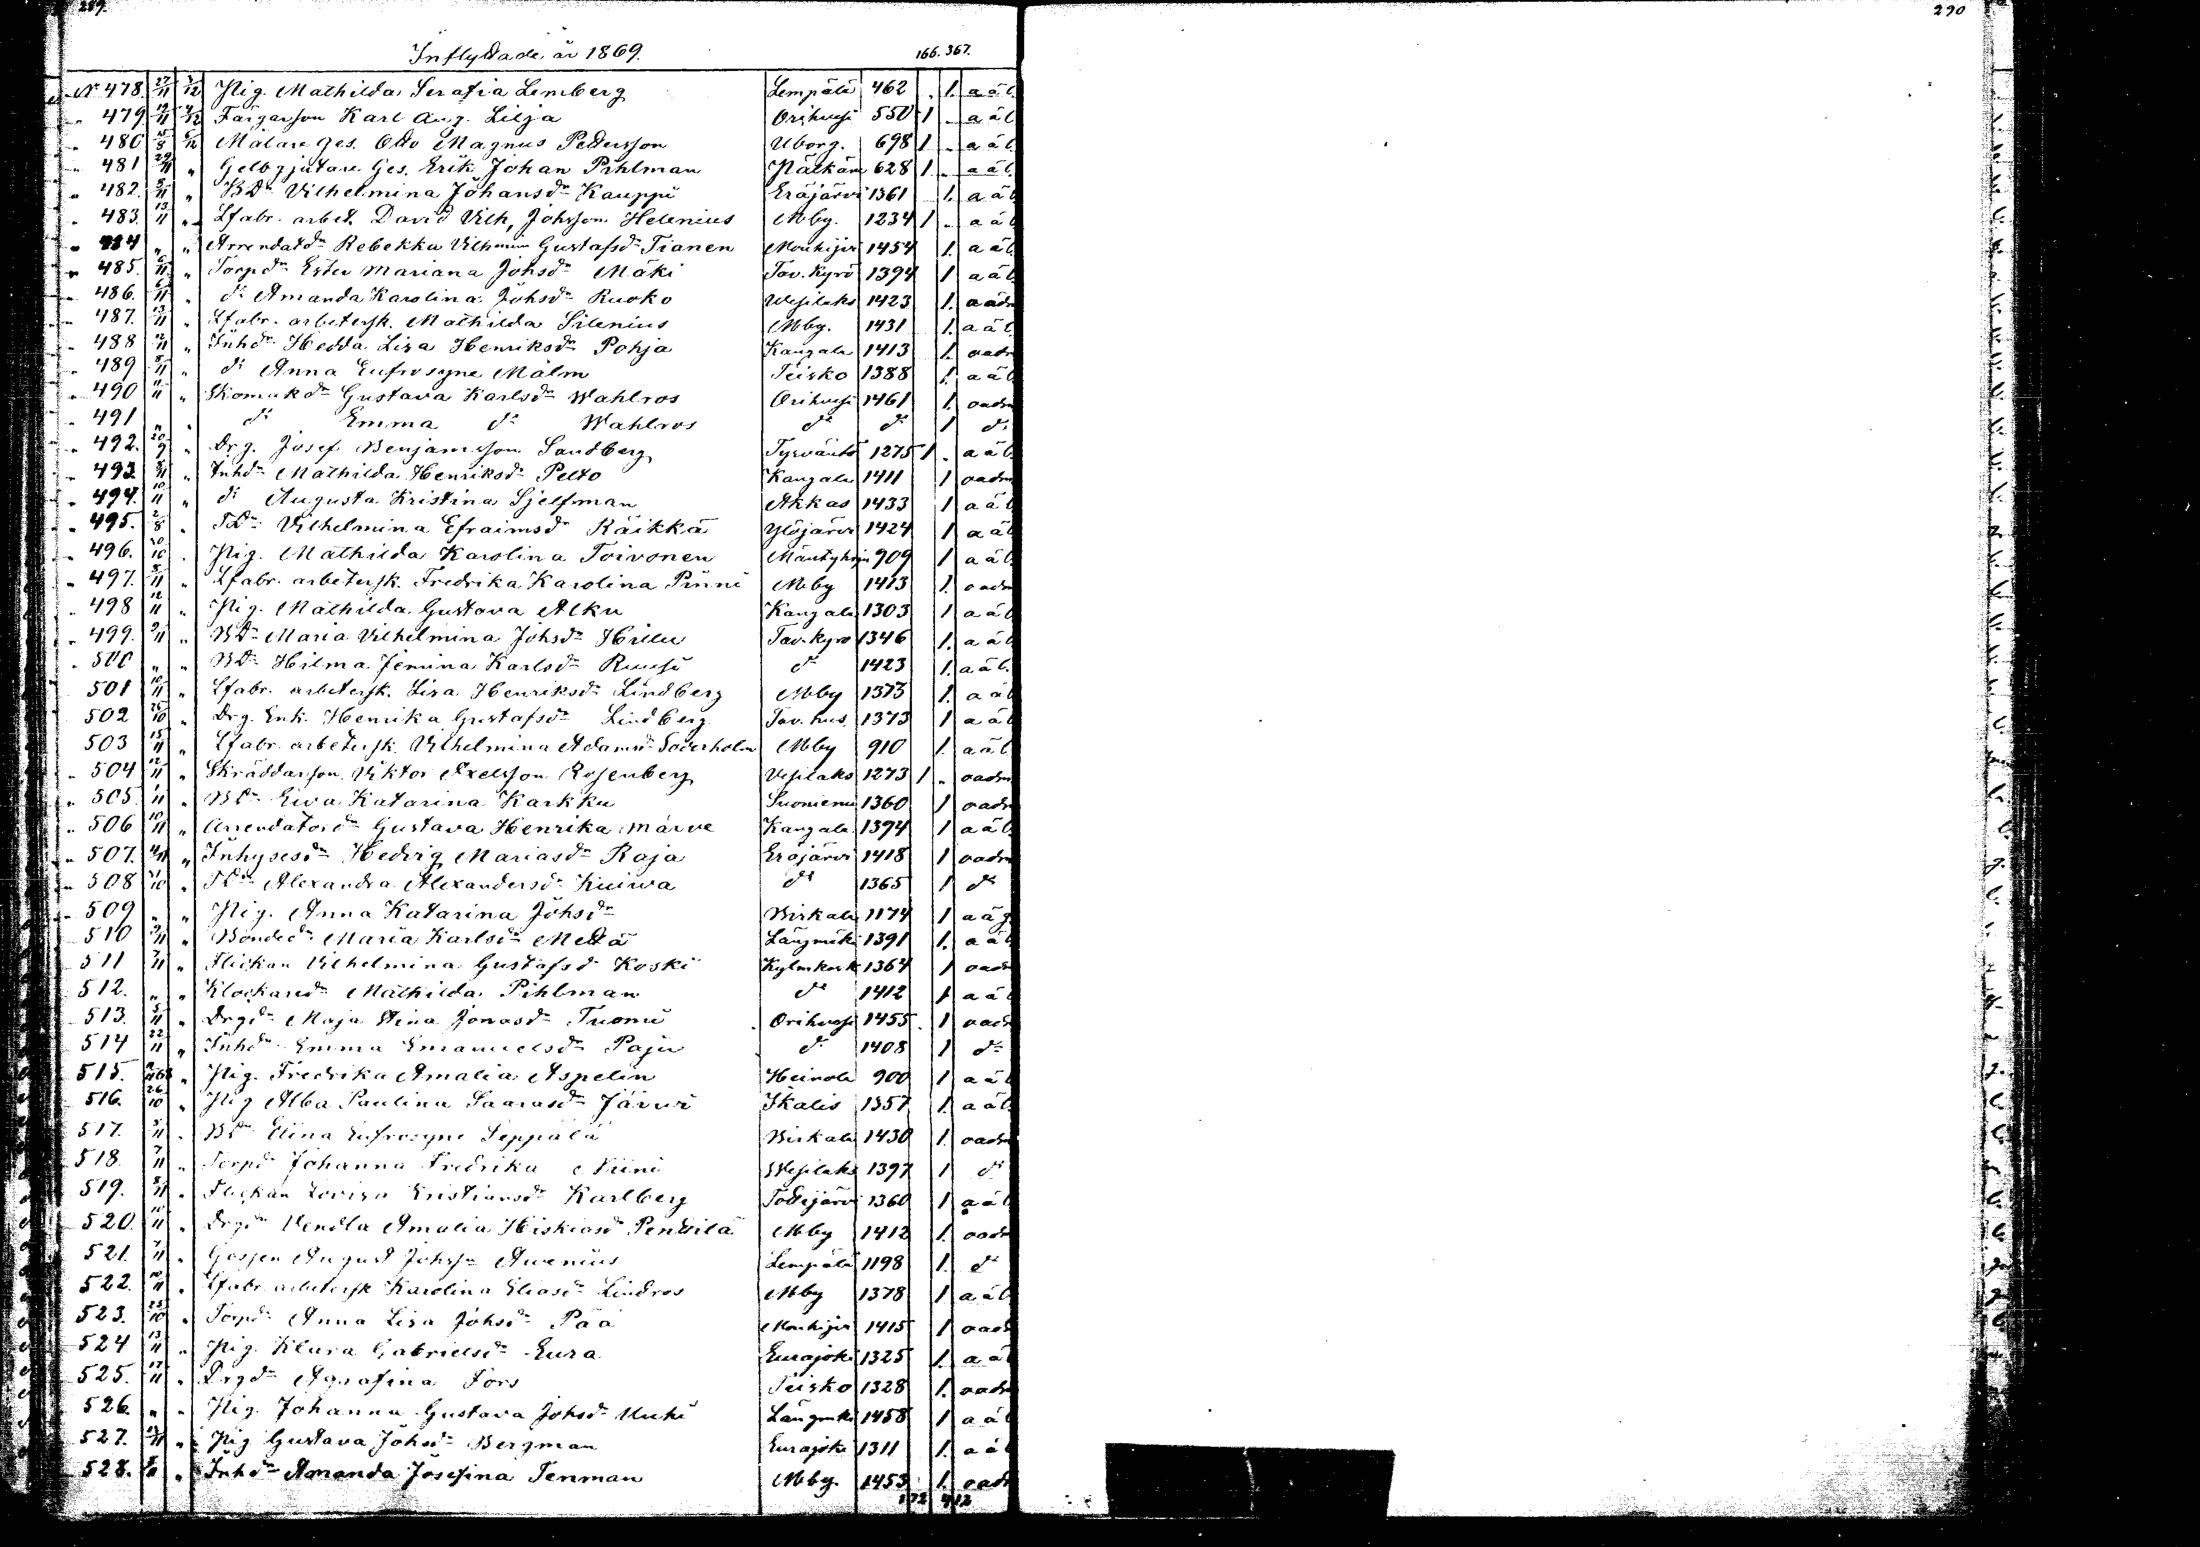 289. 290
Inflyttade år 1869. 166. 367.
N 478. 27/11 2/12 Pig. Mathilda Serafia Lemberg Lempälä 462 . 1. a ä b
" 479. 12/11 4/12 Färgarson Karl Aug. Lilja Orihvesi 550 1 " a ä b
" 480 15/8 6/12 Målare ges. Otto Magnus Pettersson Uborg. 698 1 " a ä b
" 481 29/11 " Gelbgjutare Ges. Erik Johan Pihlman Pälkäne 628 1 " a ä b
" 482. 8/11 " BDr Vilhelmina Johansdr Kauppi Eräjärvi 1361 1. a ä b
" 483. 13/11 " Lfabr. arbet. David Vilh, Johsson Helenius Mby. 1234 1 " a ä b
" 484 " " Arrendatdr Rebekka Vilhmina Gustafsdr Tianen Mouhijer 1454 1. a ä b
" 485. 6/11 " Torpdr Ester Mariana Johsdr Mäki Tav. Kyrö 1394 1 a ä b
" 486. 6/11 " do Amanda Karolina Johsdr Ruoko Wesilaks 1423 1. oadm
" 487. 13/11 " Lfabr. arbetersk. Mathilda Silenius Mby. 1431 1. a ä b
" 488 12/11 " Inhdr Hedda Lisa Henriksdr Pohja Kangala 1413 1. oadm
" 489 8/11 " do Anna Eufrosyne Malm Teisko 1388 1. a ä b
" 490 11/11 " Skomakdr Gustava Karlsdr Wahlros Orihvesi 1461 1. oadm
" 491 " " do Emma do Wahlros do do 1 do
" 492. 20/9 " Drg. Josef Benjamsson Sandberg Tyrväntö 1275 1 . a ä b
" 493. 5/11 " Inhdr Mathilda Henriksdr Pelto Kangala 1411 1 oadm
" 494. 10/11 " do Augusta Kristina Sjelfman Akkas 1433 1 a ä b
" 495. 2/8 " TDr Vilhelmina Efraimsdr Räikkä Ylöjärvi 1424 1 a ä b
" 496. 20/10 . Pig. Mathilda Karolina Toivonen Mäntyharju 909 1 a ä b
" 497. 8/11 " Lfabr. arbetersk. Fredrika Karolina Pinni Mby 1413 1. oadm
" 498 12/11 " Pig. Mathilda Gustava Alku Kangala 1303 1 a ä b
" 499. 9/11 " BDr Maria Vilhelmina Johsdr Hillu Tav. kyro 1346 1. a ä b
" 500 " " BDr Hilma Jemina Karlsdr Ruusi do 1423 1. a ä b.
501 10/11 " Lfabr. arbetersk. Lisa Henriksdr Lindberg Mby 1373 1. a ä b
502 25/10 " Drg. Enk. Henrika Gustafsdr Lindberg Tav. hus. 1373 1 a ä b
503 15/11 " Lfabr. arbetersk. Vilhelmina Adamsdr Söderholm Mby 910 1. a ä b
" 504 12/11 " Skräddarson Viktor Axelsson Rosenberg Vesilaks 1273 1 " oadm
" 505. 1/11 " BDr Eiva Katarina Karkku Suoniemi 1360 1 oadm
" 506 10/11 " Arrendatordr Gustava Henrika Marve Kangala 1394 1 a ä b.
" 507. 4/11 " Inhysesdr Hedvig Mariasdr Raja Eräjärvi 1418 1 oadm
" 508 31/10 " TDr Alexandra Alexandersdr Kuiwa do 1365 1 do
509 " " Pig. Anna Katarina Johsdr Birkala 1174 1 a ä g
510 9/11 " Bondedr Maria Karlsdr Mettä Längmäki 1391 1. a ä b
511 7/11 " Flickan Vilhelmina Gustafsdr Koski Kylmkosk 1364 1 oadm
512. " " Klockaredr Mathilda Pihlman do 1412 1 a ä b
513. 5/11 " Drgdr Maja Stina Jonasdr Tuomi Orihvesi 1455 . 1 oadm
514 22/11 " Inhdr Emma Emanuelsdr Paju do 1408 1 do
515. " Pig. Fredrika Amalia Aspelin Heinola 900 1 a ä b
516. 26/10 " Pig Alba Paulina Saarasdr Järvi Ikalis 1357 1. a ä b
517. 5/11 . BDr Elina Eufrosyne Seppälä Birkala 1430 1. oadm
518 7/11 " Torpdr Johanna Fredrika Niini Wesilaks 1397 1 do
519. 8/11 . Flickan Lovisa Kristiansdr Karlberg Tottijärvi 1360 1 a ä b
520. 11/11 " Drgdr Vendla Amalia Hiskiasdr Penttilä Mby 1412 1. oadm
521. 7/11 . Gossen August Johsson Avenius Lempälä 1198 1. do
522. 10/11 . Lfabr. arbetersk Karolina Eliasdr Lindros Mby 1378 1 a ä b
523. 25/10 . Torpdr Anna Lisa Johsdr Pää Mouhijer 1415 1 oadm
524 13/11 " Pig. Klara Gabrielsdr Eura Eurajoki 1325 1. a ä b
525. 17/11 . Drgdr Agrafina Fors Teisko 1328 1. oadm
526. " " Pig. Johanna Gustava Johsdr Kuhi Längmki 1458 1 a ä b
527. " Pig Gustava Johsdr Bergman Eurajoki 1311 1. a ä b
528. " Inhdr Amanda Josefina Tenman Mby. 1453 1. oadm
172 412